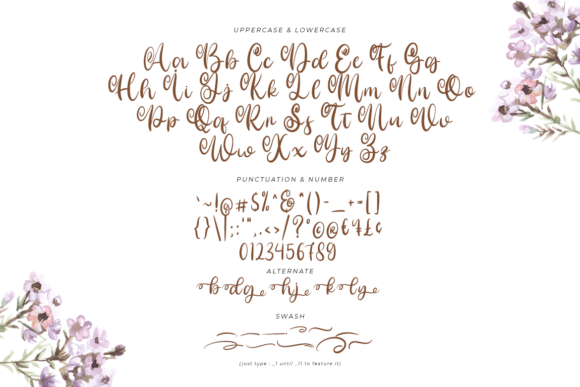 UPPERCASE & LOWERCASE
Aa Bb Cc Dd Ee Ff Gg
Hh Ii Jj Kk Ll Mm Nn Oo
Pp Qq Rr Ss Tt Uu Vv
Ww Xx Yy Zz
PUNCTUATION & NUMBER
`~!@#$%^&*()-_+=[]
{}\|;:'",.<>/?°©®€¥£¢
0123456789
ALTERNATE
b d g h j k l y
SWASH
(just type : _1 until _11 to feature it)